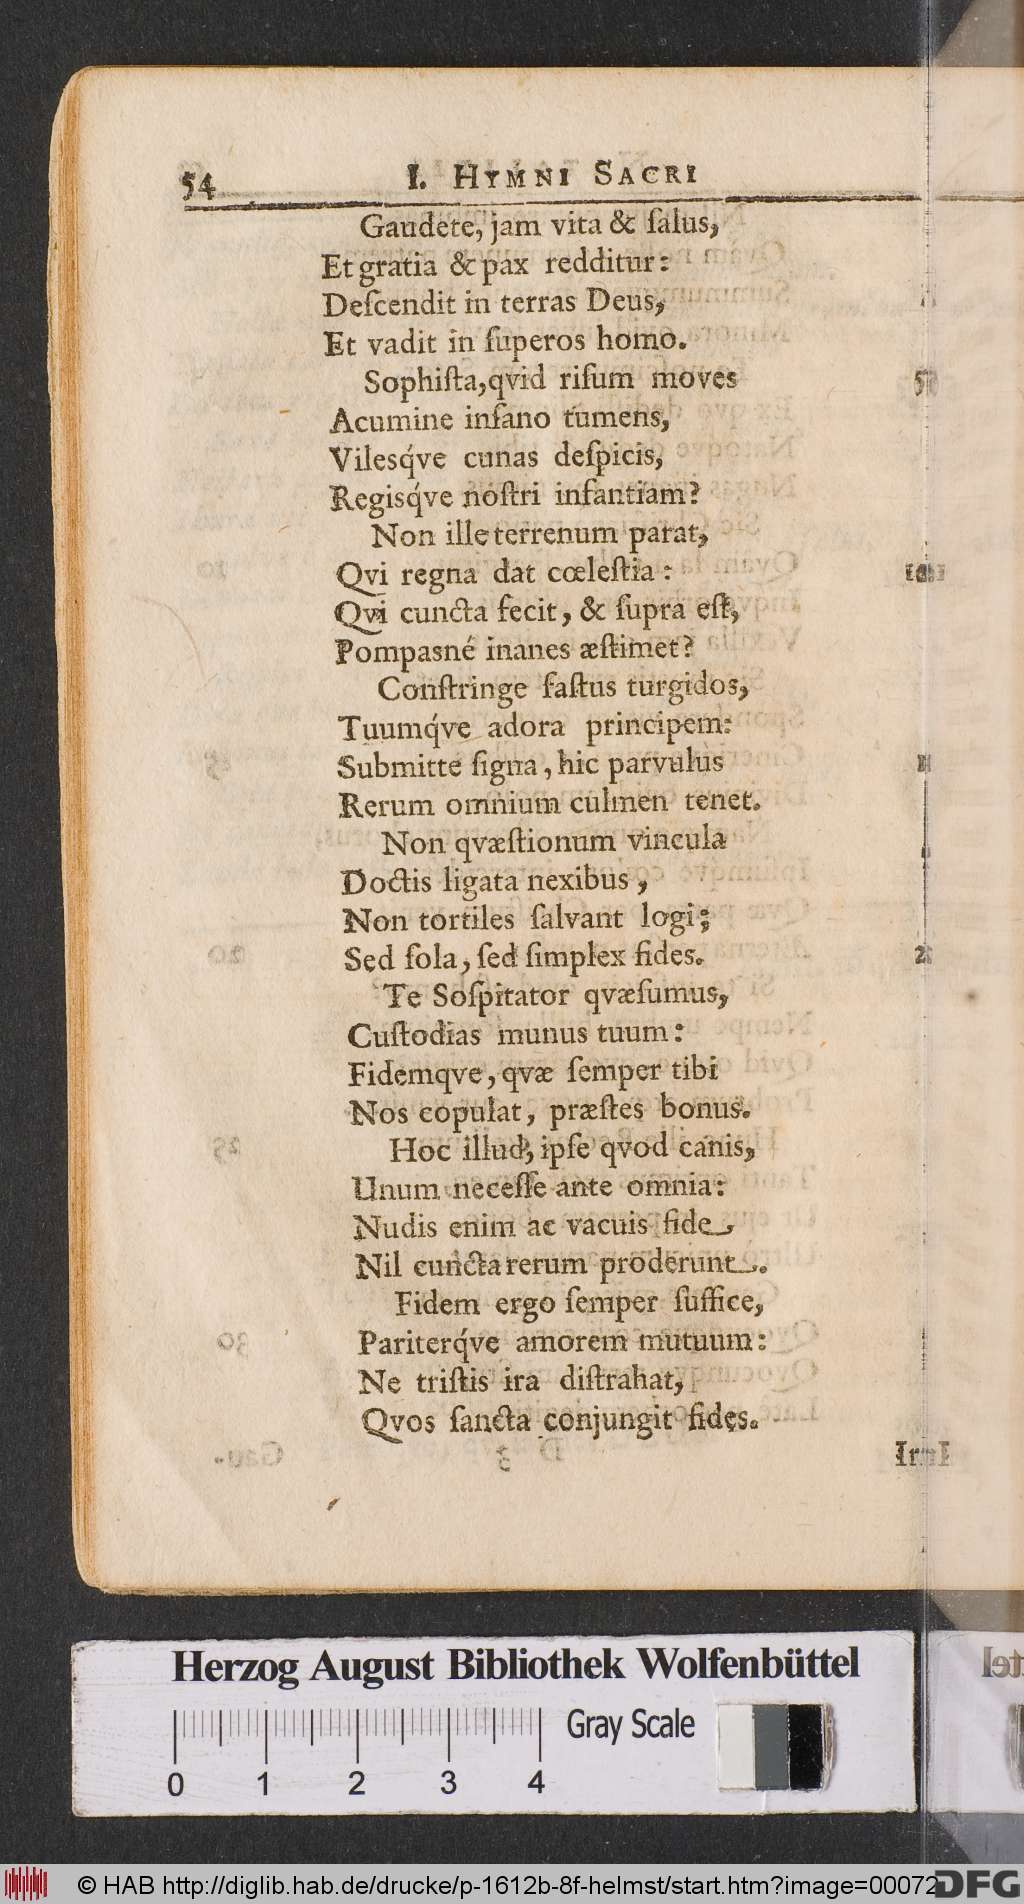 54 I. HYMNI SACRI
Gaudete, jam vita & ſalus,
Et gratia & pax redditur:
Deſcendit in terras Deus,
Et vadit in ſuperos homo.
Sophiſta, qvid riſum moves
Acumine inſano tumens,
Vilesq́ve cunas deſpicis,
Regisq́ve noſtri infantiam?
Non ille terrenum parat,
Qvi regna dat cœleſtia:
Qvi cuncta fecit, & ſupra eſt,
Pompasné inanes æſtimet?
Conſtringe faſtus turgidos,
Tuumq́ve adora principem:
Submitte ſigna, hic parvulus
Rerum omnium culmen tenet.
Non qvæſtionum vincula
Doctis ligata nexibus,
Non tortiles ſalvant logi;
Sed ſola, ſed ſimplex fides.
Te Soſpitator qvæſumus,
Cuſtodias munus tuum:
Fidemqve, qvæ ſemper tibi
Nos copulat, præſtes bonus.
Hoc illud, ipſe qvod canis,
Unum neceſſe ante omnia:
Nudis enim ac vacuis fide
Nil cuncta rerum proderunt.
Fidem ergo ſemper ſuffice,
Pariterq́ve amorem mutuum:
Ne triſtis ira diſtrahat,
Qvos ſancta conjungit fides.
Herzog August Bibliothek Wolfenbüttel
Gray Scale
0 1 2 3 4
© HAB http://diglib.hab.de/drucke/p-1612b-8f-helmst/start.htm?image=00072
DFG